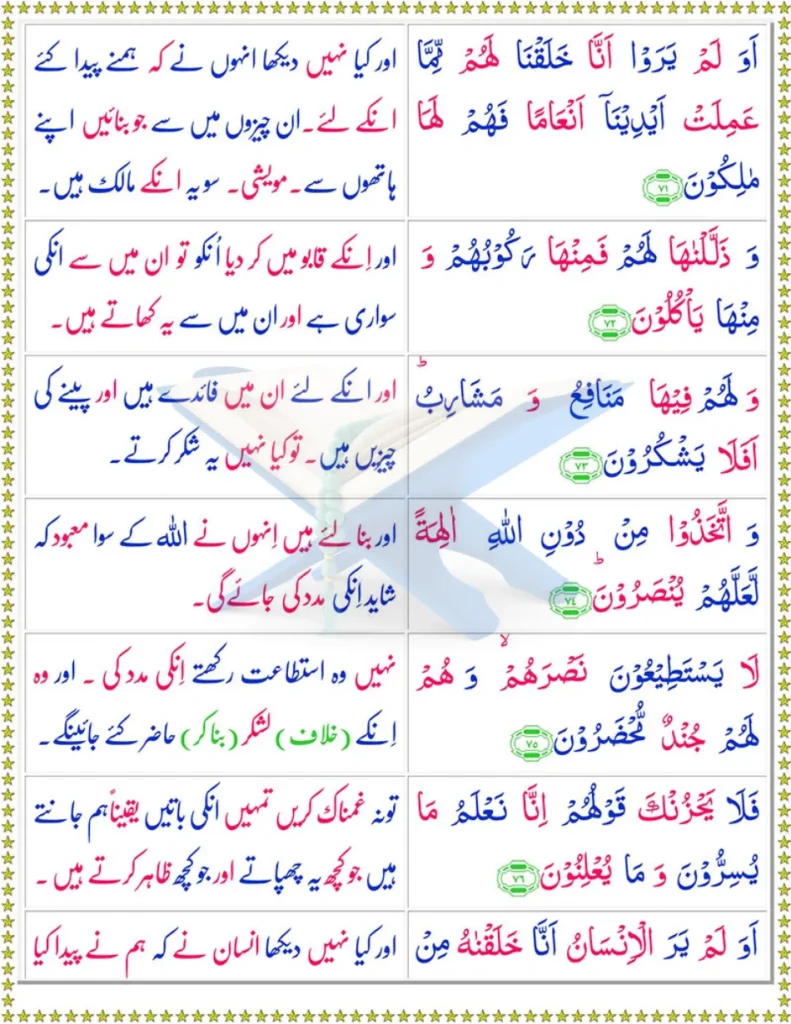 اَوَ لَمْ يَرَوْا اَنَّا خَلَقْنَا لَهُمْ مِّمَّا
عَمِلَتْ اَيْدِيْنَاۤ اَنْعَامًا فَهُمْ لَهَا
مٰلِكُوْنَ ﴿٧١﴾
اور کیا نہیں دیکھا انہوں نے کہ ہمنے پیدا کئے
انکے لئے۔ ان چیزوں میں سے جو بنائیں اپنے
ہاتھوں سے۔ مویشی۔ سو یہ انکے مالک ہیں۔
وَ ذَلَّلْنٰهَا لَهُمْ فَمِنْهَا رَكُوْبُهُمْ وَ
مِنْهَا يَاْكُلُوْنَ ﴿٧٢﴾
اور اِنکے قابو میں کر دیا اُنکو تو ان میں سے انکی
سواری ہے اور ان میں سے یہ کھاتے ہیں۔
وَ لَهُمْ فِيْهَا مَنَافِعُ وَ مَشَارِبُ ؕ
اَفَلَا يَشْكُرُوْنَ ﴿٧٣﴾
اور انکے لئے ان میں فائدے ہیں اور پینے کی
چیزیں ہیں۔ تو کیا نہیں یہ شکر کرتے۔
وَ اتَّخَذُوْا مِنْ دُوْنِ اللّٰهِ اٰلِهَةً
لَّعَلَّهُمْ يُنْصَرُوْنَ ؕ ﴿٧٤﴾
اور بنا لئے ہیں اِنہوں نے اللہ کے سوا معبود کہ
شاید اِنکی مدد کی جائے گی۔
لَا يَسْتَطِيْعُوْنَ نَصْرَهُمْ ۙ وَ هُمْ
لَهُمْ جُنْدٌ مُّحْضَرُوْنَ ﴿٧٥﴾
نہیں وہ استطاعت رکھتے اِنکی مدد کی ۔ اور وہ
اِنکے (خلاف) لشکر (بنا کر) حاضر کئے جائینگے۔
فَلَا يَحْزُنْكَ قَوْلُهُمْ اِنَّا نَعْلَمُ مَا
يُسِرُّوْنَ وَ مَا يُعْلِنُوْنَ ﴿٧٦﴾
تو نہ غمناک کریں تمہیں انکی باتیں یقیناً ہم جانتے
ہیں جو کچھ یہ چھپاتے اور جو کچھ ظاہر کرتے ہیں ۔
اَوَ لَمْ يَرَ الْاِنْسَانُ اَنَّا خَلَقْنٰهُ مِنْ
اور کیا نہیں دیکھا انسان نے کہ ہم نے پیدا کیا